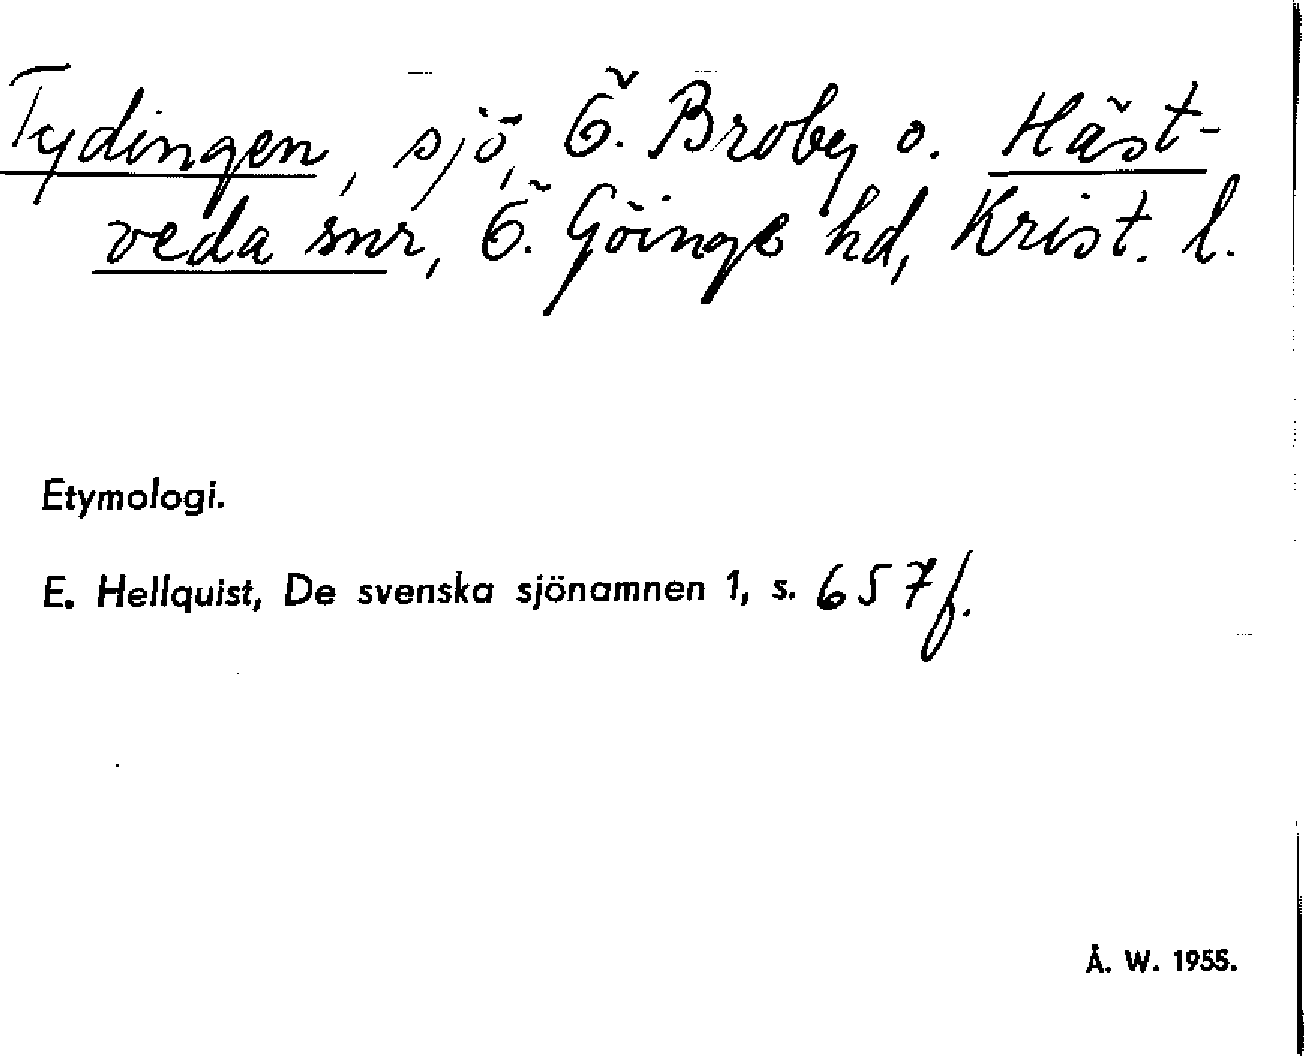 Tydingen, sjö, Ö. Broby o. Häst-
veda snr, Ö. Göinge hd, Krist. l.
Etymologi.
E. Hellquist, De svenska sjönamnen 1, s. 657 f.
Å. W. 1955.